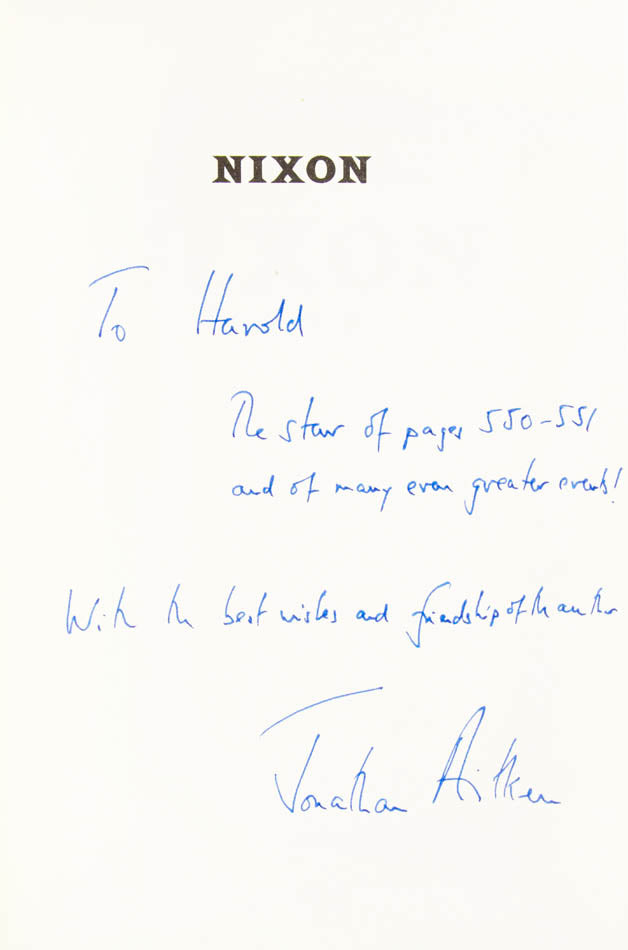 NIXON
To Harold
The star of pages 550-551
and of many even greater events!
With the best wishes and friendship of the author
Jonathan Aitken